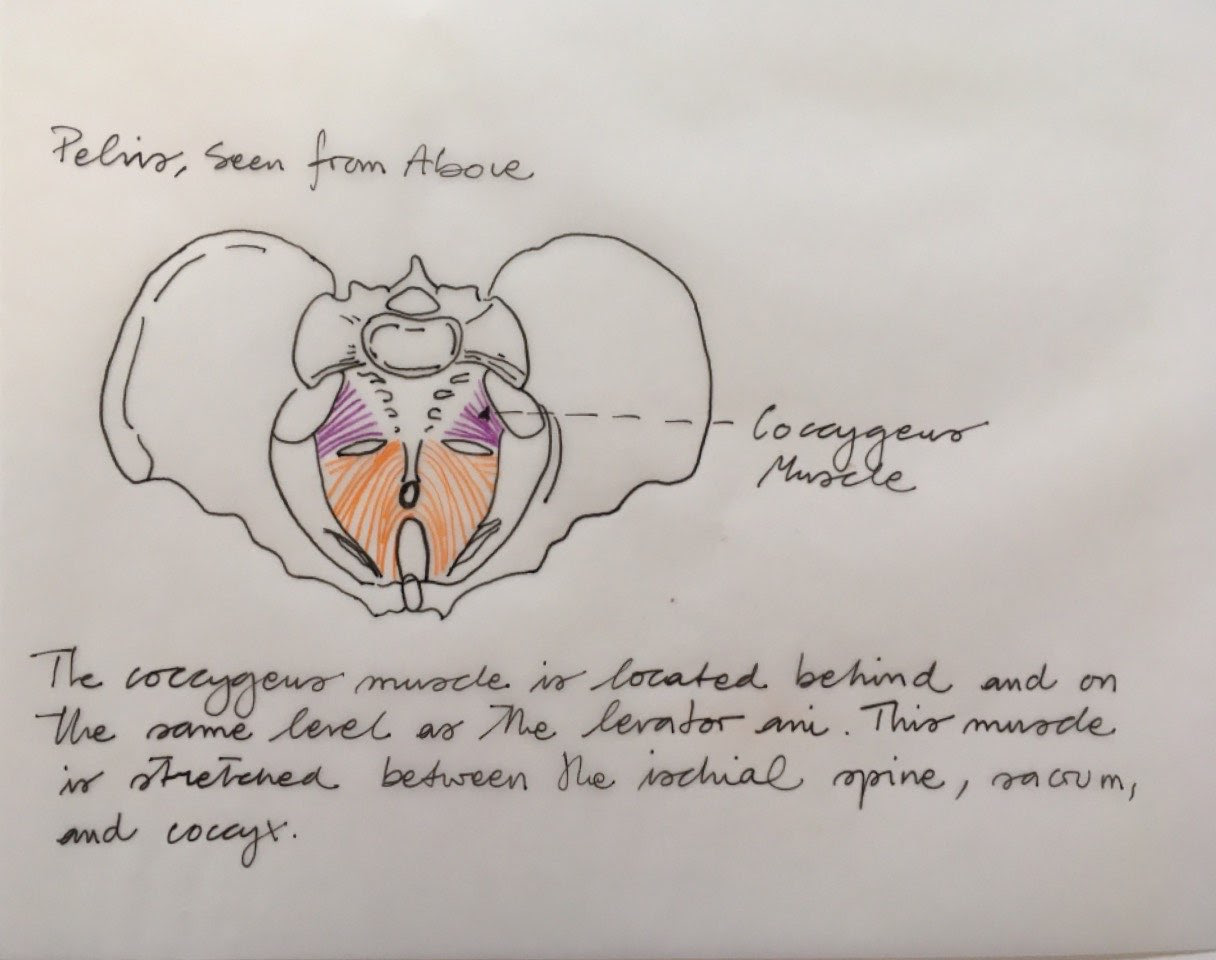 Pelvis, Seen from Above
Coccygeus
Muscle
The coccygeus muscle is located behind and on
the same level as the levator ani. This muscle
is stretched between the ischial spine, sacrum,
and coccyx.